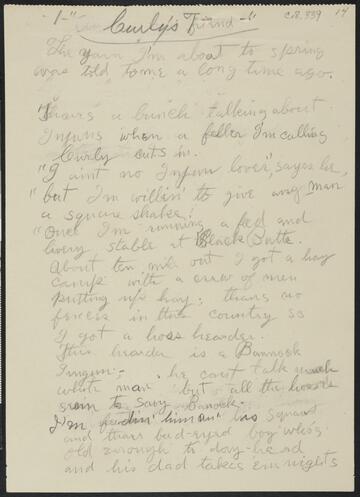 1- "Curly's Friend -" C.R. 339 14
The yarn I'm about to spring
was told to me a long time ago.
Thars a bunch talking about
Injuns when a feller I'm calling
Curly cuts in.
"I aint no Injun lover, sayes he,
"but I'm willin' to give any man
a square shake;
"Once I'm running a feed and
livery stable at Black Butte.
About ten mile out I got a hay
camp with a crew of men
putting up hay; thars no
fences in this country so
I got a hoss hearder.
This hearder is a Bannock
Inygun;- he cant talk much
white man but all the hosses
seem to Savy Banock.
I'm feedin' him an' his squaw
and thars bead-eyed boy who's
old enough to day-heard
and his dad takes em nights